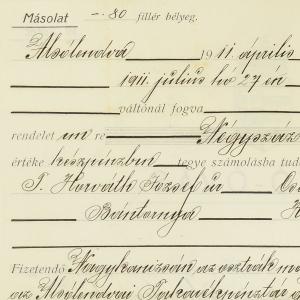 Másolat —.80 fillér bélyeg.
Alsólendva 1911 április
1911. július hó 27 én
váltónál fogva
rendelet em re Négyszáz
értéke készpénzben tegye számolásba tud
T. Horváth József úr
Bántornya
Fizetendő Nagykanizsán az osztrák ma
az Alsólendvai Takarékpénztár